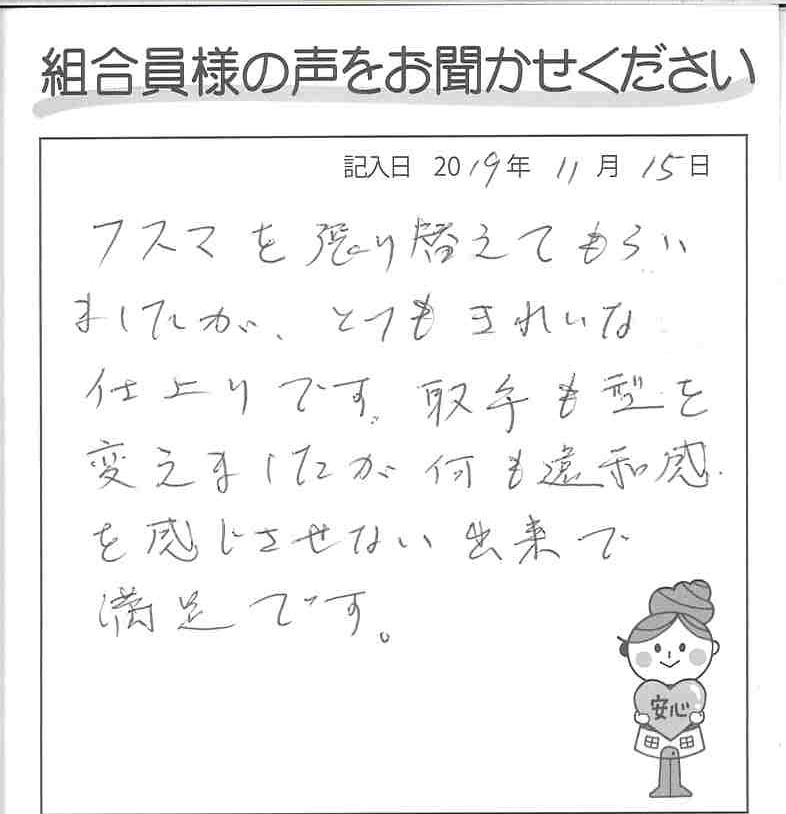 組合員様の声をお聞かせください
記入日 2019年 11月 15日
フスマを張り替えてもらい
ましたが、とてもきれいな
仕上りです。取手も型を
変えましたが何も違和感
を感じさせない出来で
満足です。
安心